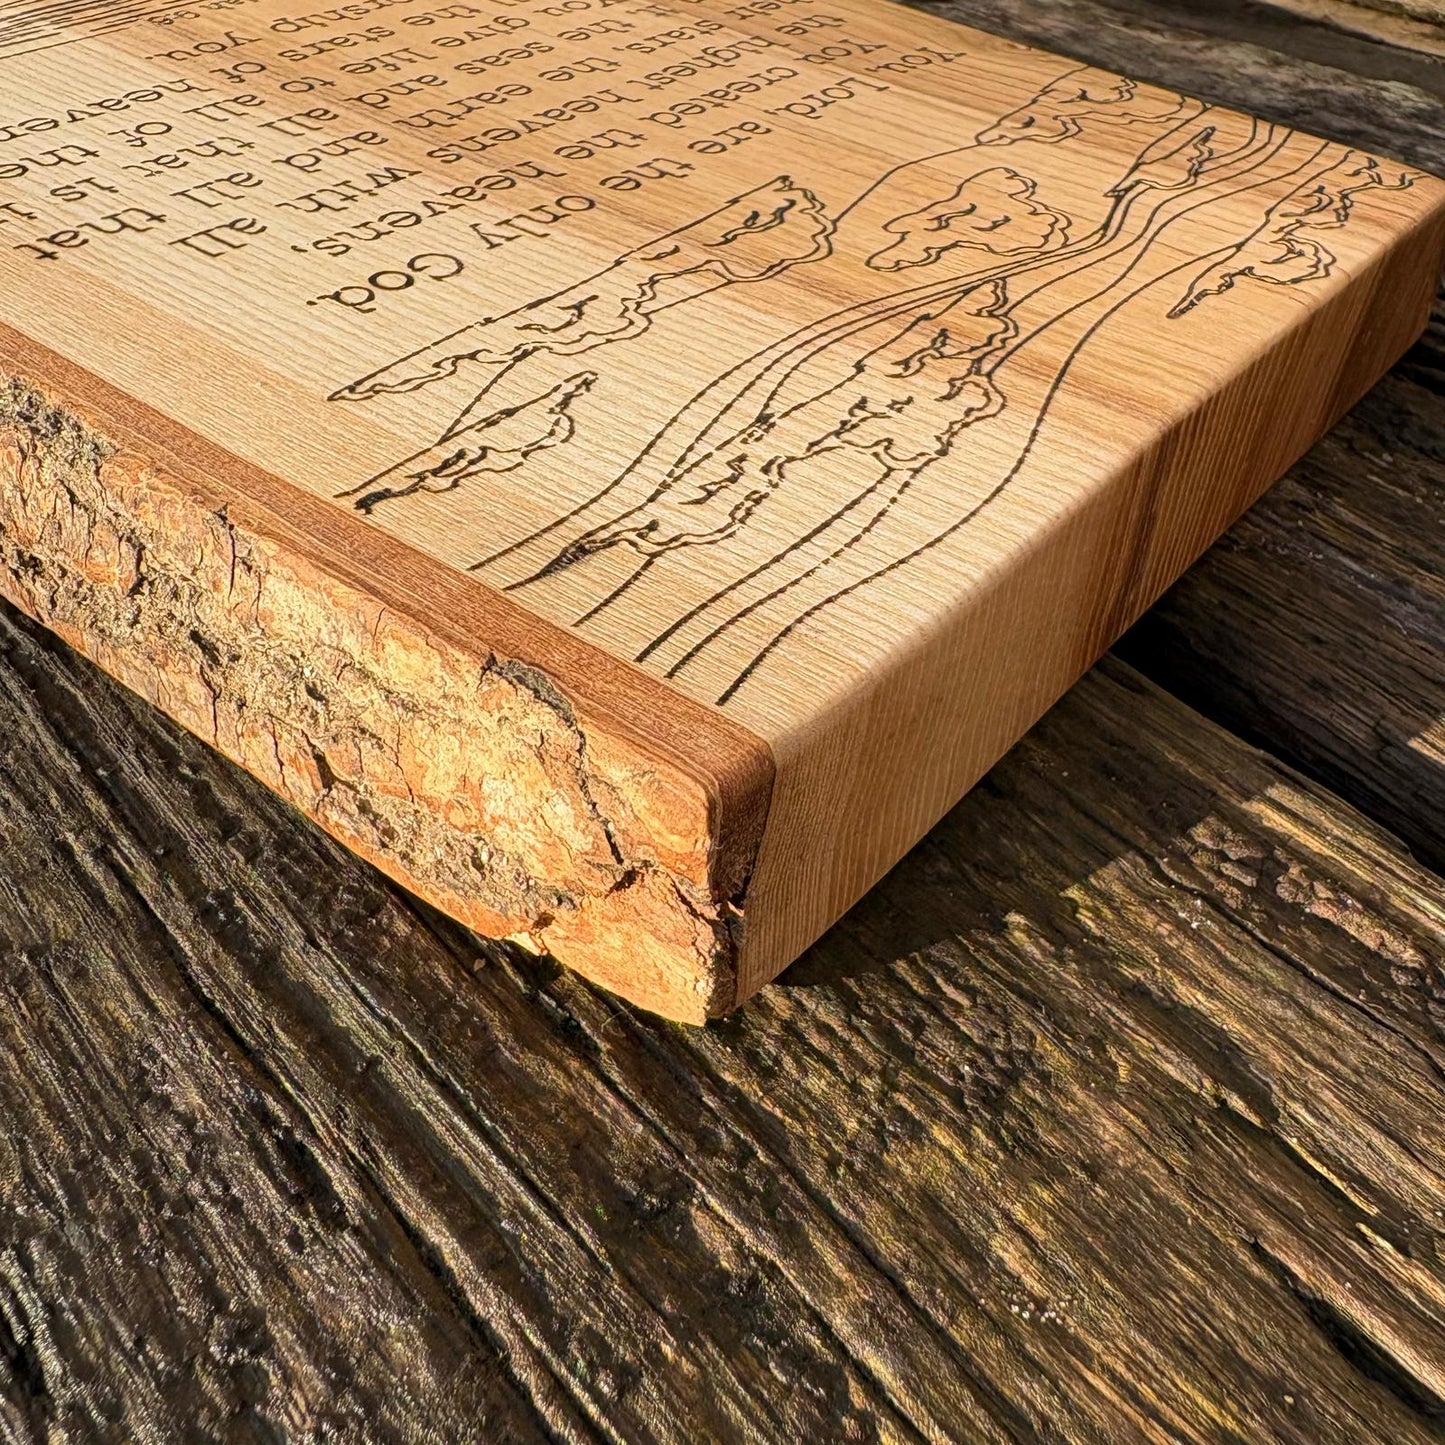 you, Lord, are the only God,
you created the heavens,
the highest heavens, with all
stars, the earth and all that
the seas and all that is
you give life to all of
the stars of heaven
you.